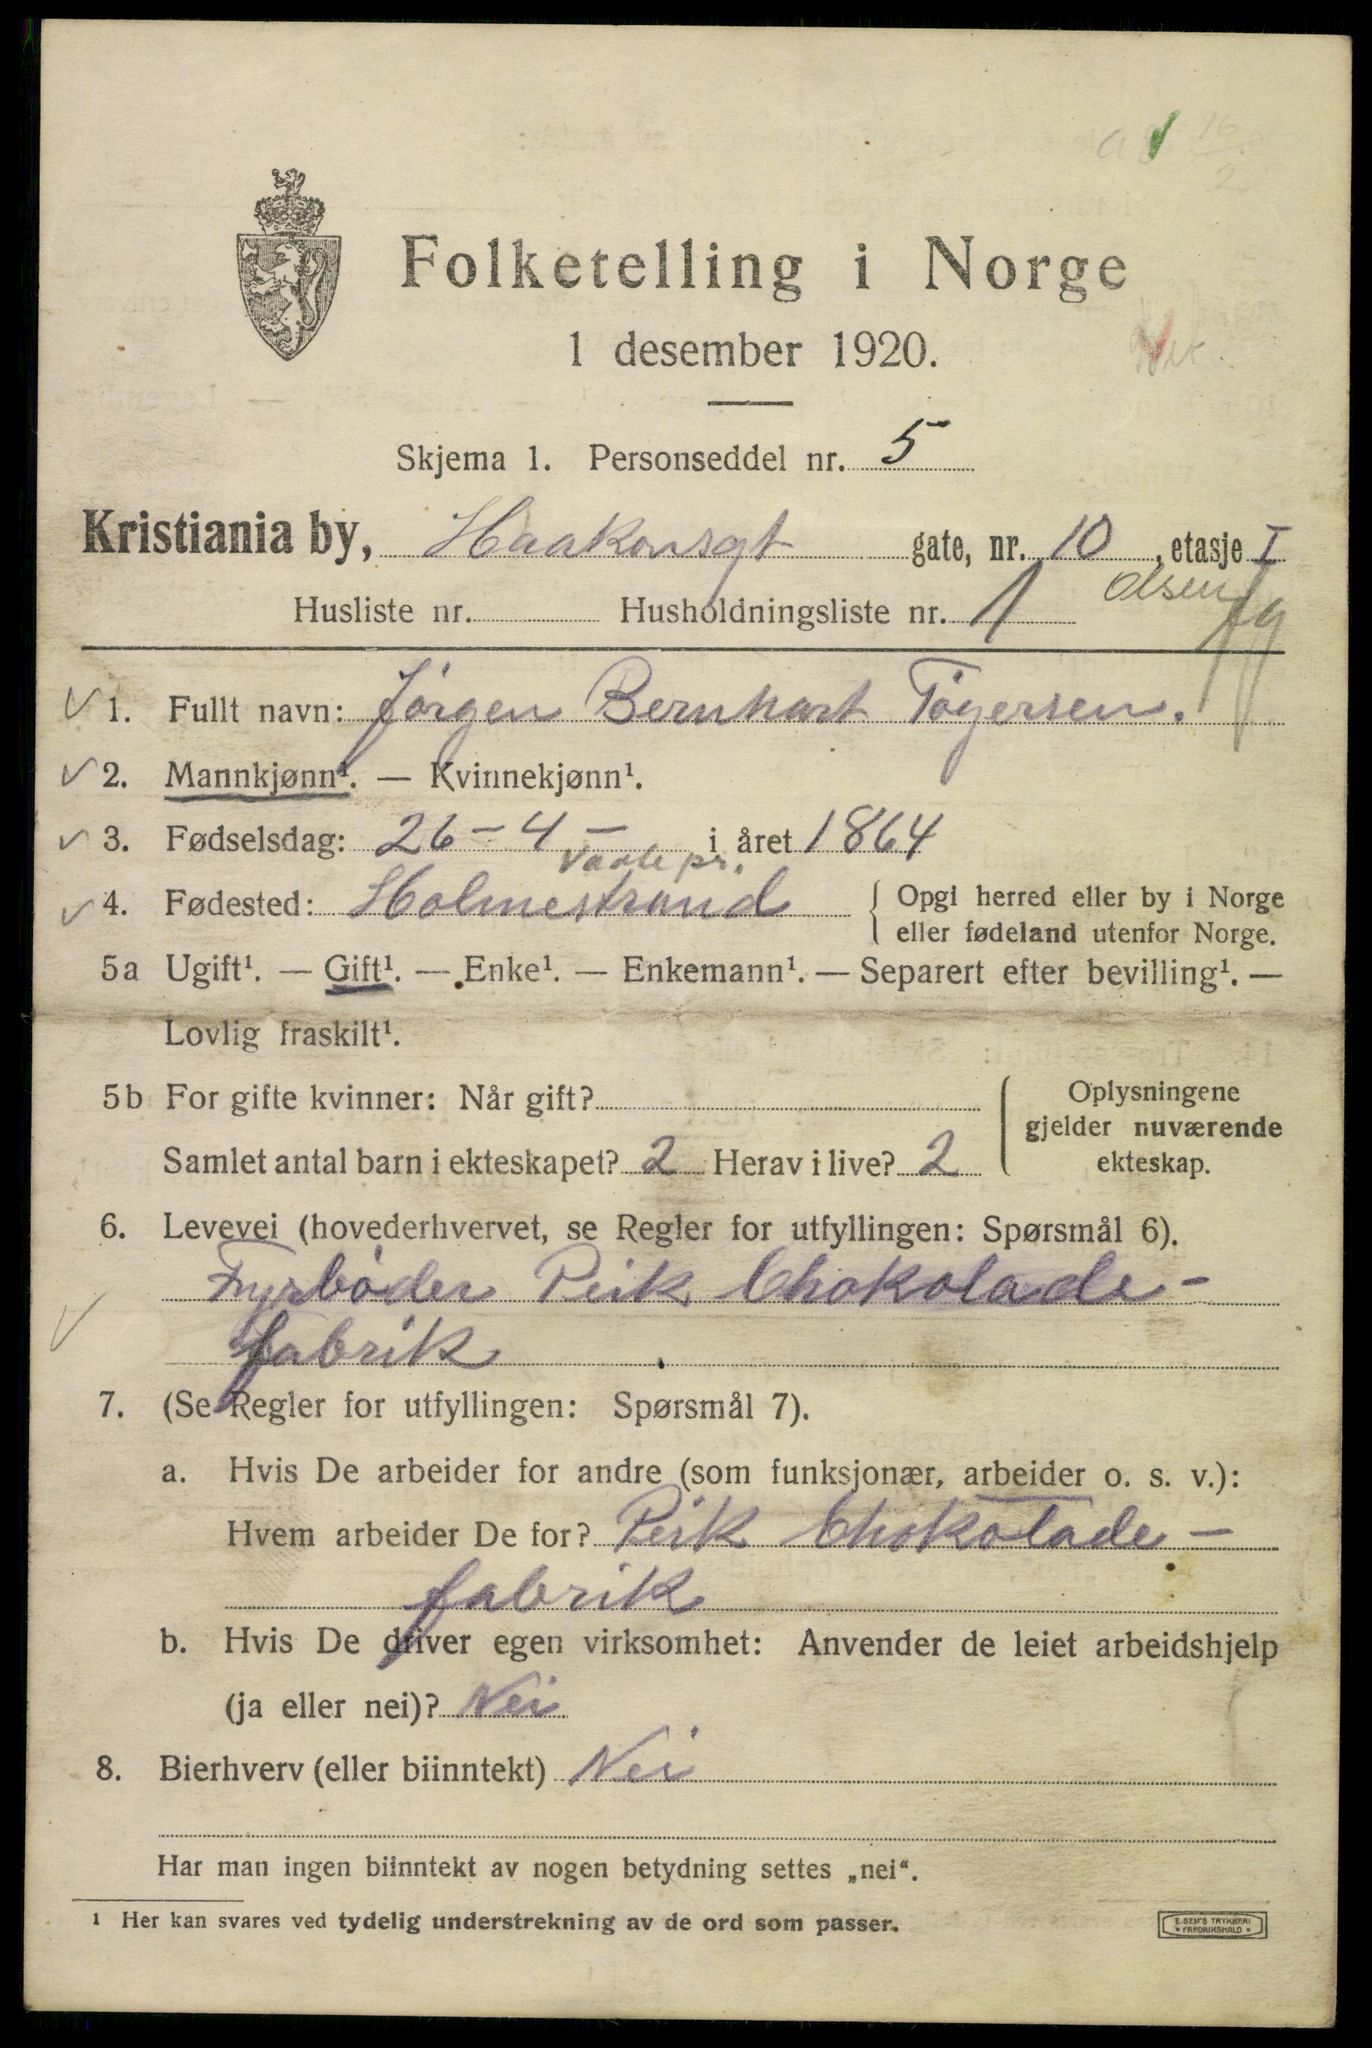 16
2
Folketelling i Norge
1 desember 1920.
Skjema 1. Personseddel nr. 5
Kristiania by, Haakonsgt gate, nr. 10, etasje I
Husliste nr. Husholdningsliste nr. 1 Olsen
1. Fullt navn: Jørgen Bernhart Tøgersen.
2. Mannkjønn¹. — Kvinnekjønn¹.
3. Fødselsdag: 26 – 4 – i året 1864
Vaale pr.
4. Fødested: Holmestrand { Opgi herred eller by i Norge
eller fødeland utenfor Norge.
5a Ugift¹. — Gift¹. — Enke¹. — Enkemann¹. — Separert efter bevilling¹. —
Lovlig fraskilt¹.
5b For gifte kvinner: Når gift?
Samlet antal barn i ekteskapet? 2 Herav i live? 2
Oplysningene
gjelder nuværende
ekteskap.
6. Levevei (hovederhvervet, se Regler for utfyllingen: Spørsmål 6).
Fyrbøder Perk Chokolade-
fabrik
7. (Se Regler for utfyllingen: Spørsmål 7).
a. Hvis De arbeider for andre (som funksjonær, arbeider o. s. v.):
Hvem arbeider De for? Perk Chokolade-
fabrik
b. Hvis De driver egen virksomhet: Anvender de leiet arbeidshjelp
(ja eller nei)? Nei
8. Bierhverv (eller biinntekt) Nei
Har man ingen biinntekt av nogen betydning settes „nei“.
¹ Her kan svares ved tydelig understrekning av de ord som passer.
E. SEM'S TRYKKERI
FREDRIKSHALD